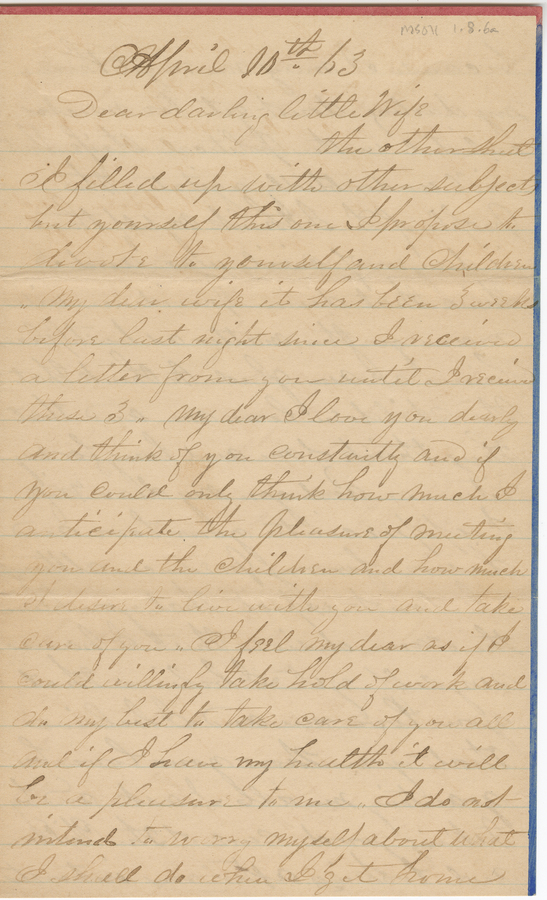 MS071 1.8.6a
April 10th /63
Dear darling little Wife
the other sheet
I filled up with other subjects
but yourself this one I propose to
devote to yourself and Children
" My dear wife it has been 3 weeks
before last night since I received
a letter from you until I receivd
these 3 " My dear I love you dearly
and think of you constantly and if
you could only think how much I
anticipate the pleasure of meeting
you and the children and how much
I desire to live with you and take
care of you " I feel my dear as if I
could willingly take hold of work and
do my best to take care of you all
and if I have my health it will
be a pleasure to me " I do not
intend to worry myself about what
I shall do when I get home